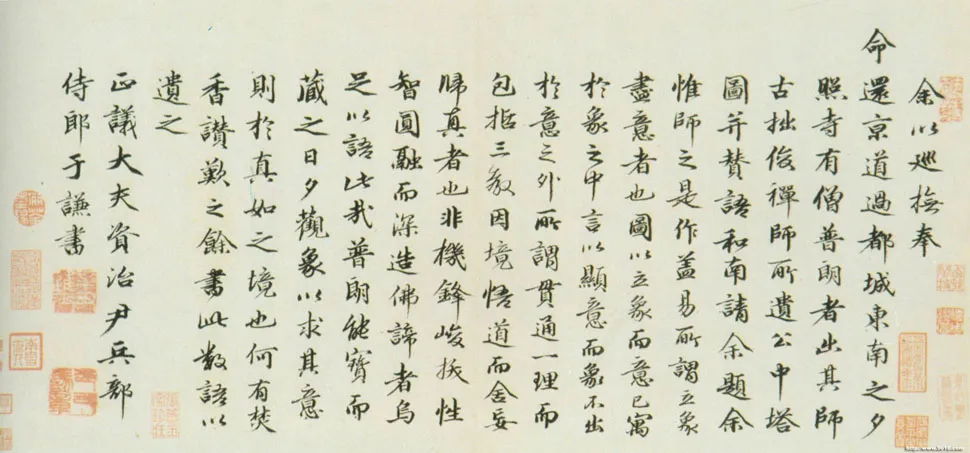 余以巡撫奉
命還京道過都城東南之夕
照寺有僧普朗者出其師
古拙俊禪師所遺公中塔
圖并賛語和南請余題余
惟師之是作盖易所謂立象
盡意者也圖以立象而意已寓
於象之中言以顯意而象不出
於意之外所謂貫通一理而
包括三教因境悟道而舍妄
歸真者也非機鋒峻拔性
智圓融而深造佛諦者烏
足以語此哉普朗能寶而
藏之日夕觀象以求其意
則於真如之境也何有焚
香讚歎之餘書此數語以
遺之
正議大夫資治尹兵部
侍郎于謙書